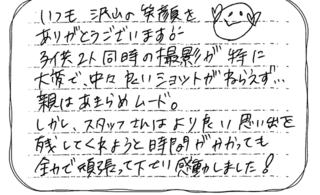 いつも沢山の笑顔を
ありがとうございます!
子供2人同時の撮影が特に
大変で、中々良いショットがねらえず…
親はあきらめムード。
しかし、スタッフさんはより良い思い出を
残してくれようと時間がかかっても
全力で頑張って下さり感動しました!